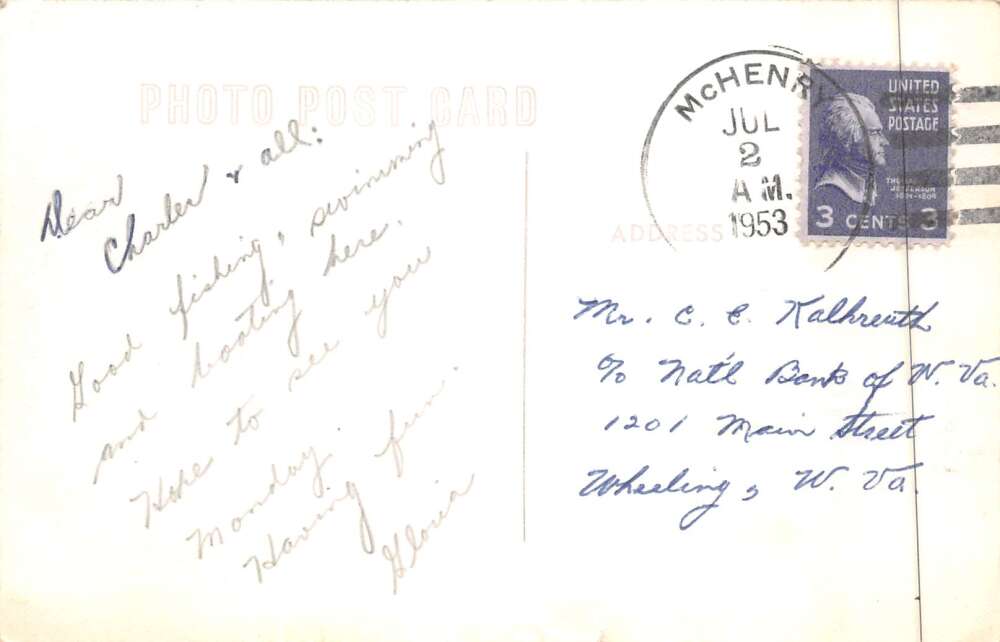 PHOTO POST CARD
Dear
Charles & all:
Good fishing, swimming
and boating here.
Hope to see you
Monday.
Having fun.
Gloria
McHENRY
JUL
2
A M.
1953
UNITED
STATES
POSTAGE
THOMAS
JEFFERSON
1801-1809
3 CENTS 3
ADDRESS
Mr. C. E. Kalbreuth
c/o Nat'l Bank of W. Va.
1201 Main Street
Wheeling, W. Va.